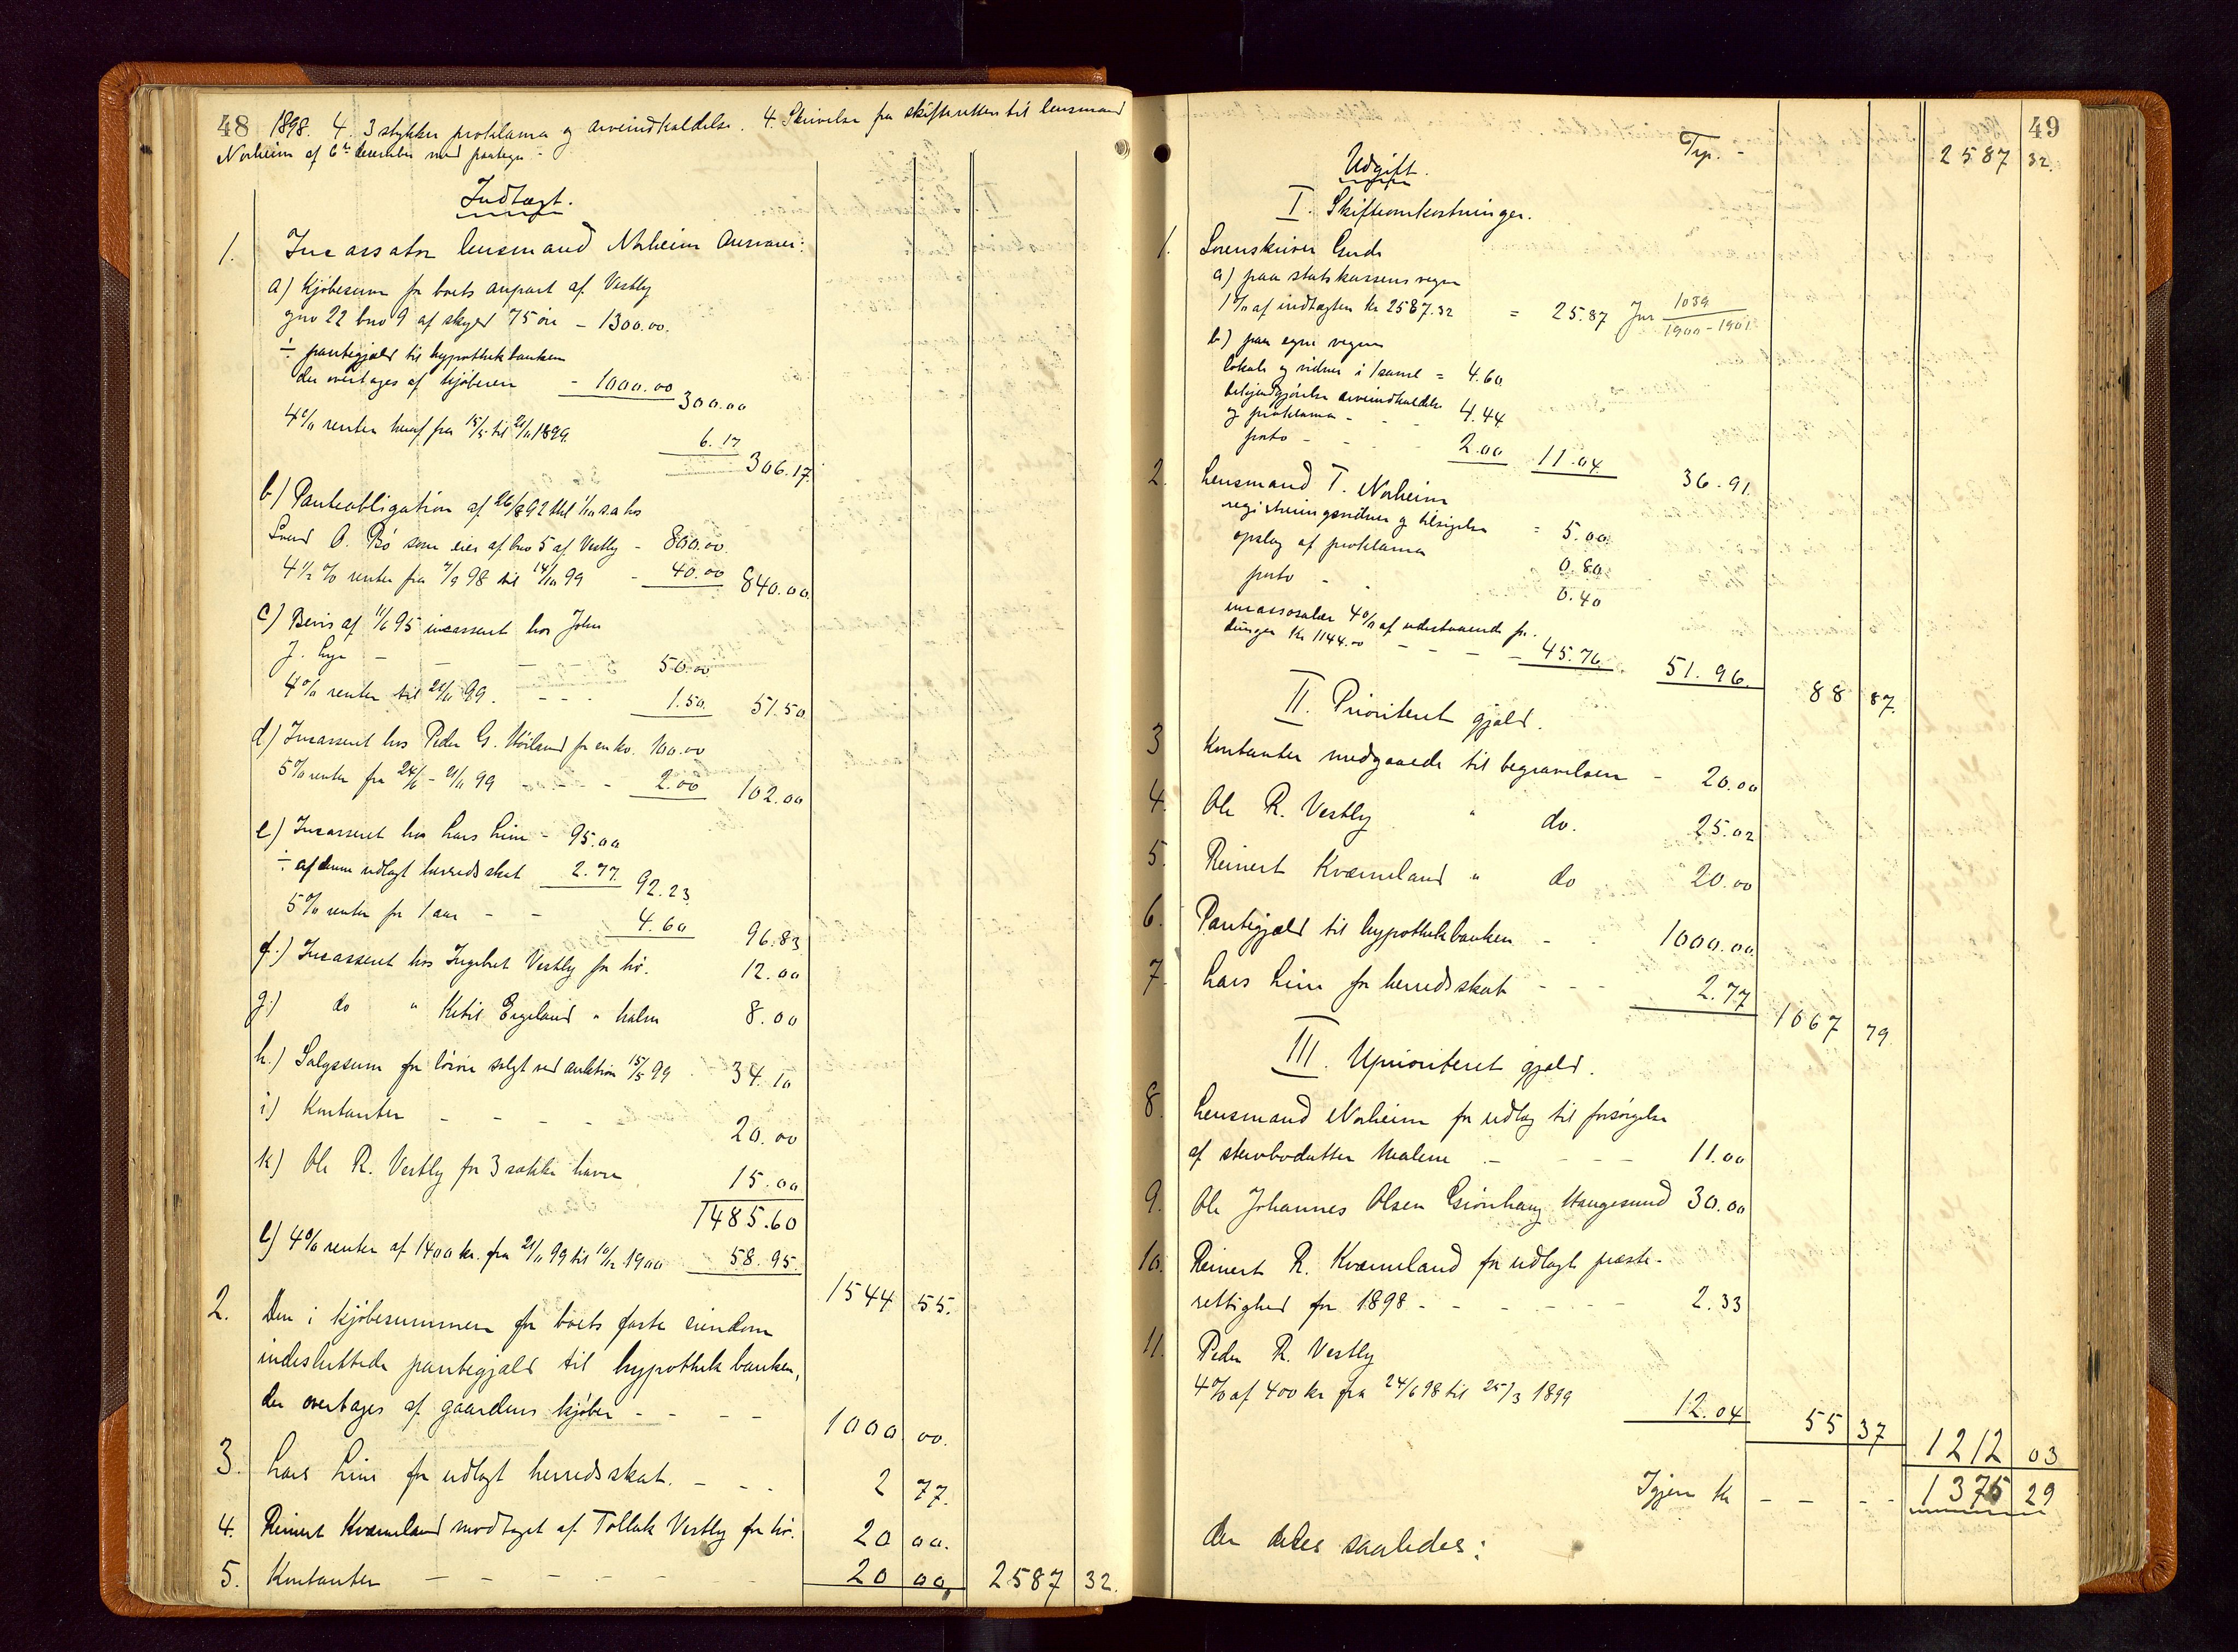 48 1898. 4. 3 stykker proklama og arveindkaldelse. 4. Skrivelse fra skifteretten til lensmand
Norheim af 6te december med paategn -
Indtægt.
1. Incassator lensmand Norheim ansvarer:
a) Kjøbesum for boets anpart af Vestly
gno 22 bno 9 af skyld 75 øre - 1300.00.
÷ pantegjæld til hypothekbanken
der overtages af kjøberen - 1000.00 300.00
4% renter heraf fra 15/5 til 21/11 1899. 6.17 306.17.
b) Panteobligation af 26/8 92 thl 1/10 s.a. hos
Svend O. Bø som eier af bno 5 af Vestly - 800.00.
4 1/2 % renter fra 7/9 98 til 14/10 99 - 40.00 840.00.
c) Bevis af 11/6 95 incasseret hos John
J. Lye - - - 50.00
4% renter til 21/11 99. - - - 1.50. 51.50
d) Incasseret hos Peder G. Høiland for en ko. 100.00
5% renter fra 24/6 - 21/11 99 - - - 2.00 102.00
e) Incasseret hos Lars Lima - 95.00
÷ af denne udlagt herredsskat 2.77. 92.23
5% renter for 1 aar - - 4.60 96.83
f.) Incasseret hos Ingebret Vestly for hø. 12.00
g.) do " Ketil Eigeland " halm 8.00
h.) Salgssum for løsøre solgt ved auktion 15/5 99 - 34.10
i.) Kontanter - - - - - 20.00
k) Ole R. Vestly for 3 sækker havre 15.00
1485.60
l) 4% renter af 1400 kr. fra 21/11 99 til 10/12 1900 58.95.
1544 55.
2. Den i kjøbesummen for boets faste eiendom
indesluttede pantegjæld til hypothekbanken,
der overtages af gaardens kjøber - - - - 1000 00.
3. Lars Lima for udlagt herredsskat. - - - 2 77.
4. Reinert Kvæmeland modtaget af Tollak Vestly for hø. 20 00.
5. Kontanter - - - - - 20 00, 2587 32.
49
Trp. - 2587 32.
Udgift.
I. Skifteomkostninger.
1. Sorenskriver Gude
a) paa statskassens vegne
1% af indtægten kr 2587.32 = 25.87 Jnr 1039/1900-1901
b) paa egne vegne
lokale og vidner i 1 saml = 4.60
bekjendtgjørelse arveindkaldelse
og proklama - - - 4.44
porto - - - 2.00 11.04. 36.91.
2. Lensmand T. Norheim
registreringsvidner og tilsigelse = 5.00.
opslag af proklama 0.80.
porto - 0.40
incassosalær 4% af udestaaende for-
dringer kr 1144.00 - - - - 45.76. 51.96. 88 87.
II. Prioriteret gjæld.
3 Kontanter medgaaede til begravelsen - 20.00
4. Ole R. Vestly " do. 25.02
5. Reinert Kvæmeland " do 20.00
6. Pantegjæld til hypothekbanken - - 1000.00.
7. Lars Lima for herredsskat - - - 2.77
1067 79.
III. Uprioriteret gjæld.
8. Lensmand Norheim for udlæg til forsørgelse
af stervbodatter Malene - - - - 11.00
9. Ole Johannes Olsen Grønhaug Haugesund 30.00
10. Reinert R. Kvæmeland for udlagt præste-
rettighed for 1898 - - - - - - 2.33
11. Peder R. Vestly
4% af 400 kr fra 24/6 98 til 25/3 1899 12.04 55 37 1212 03
Igjen kr - - - - 1375 29
der deles saaledes: